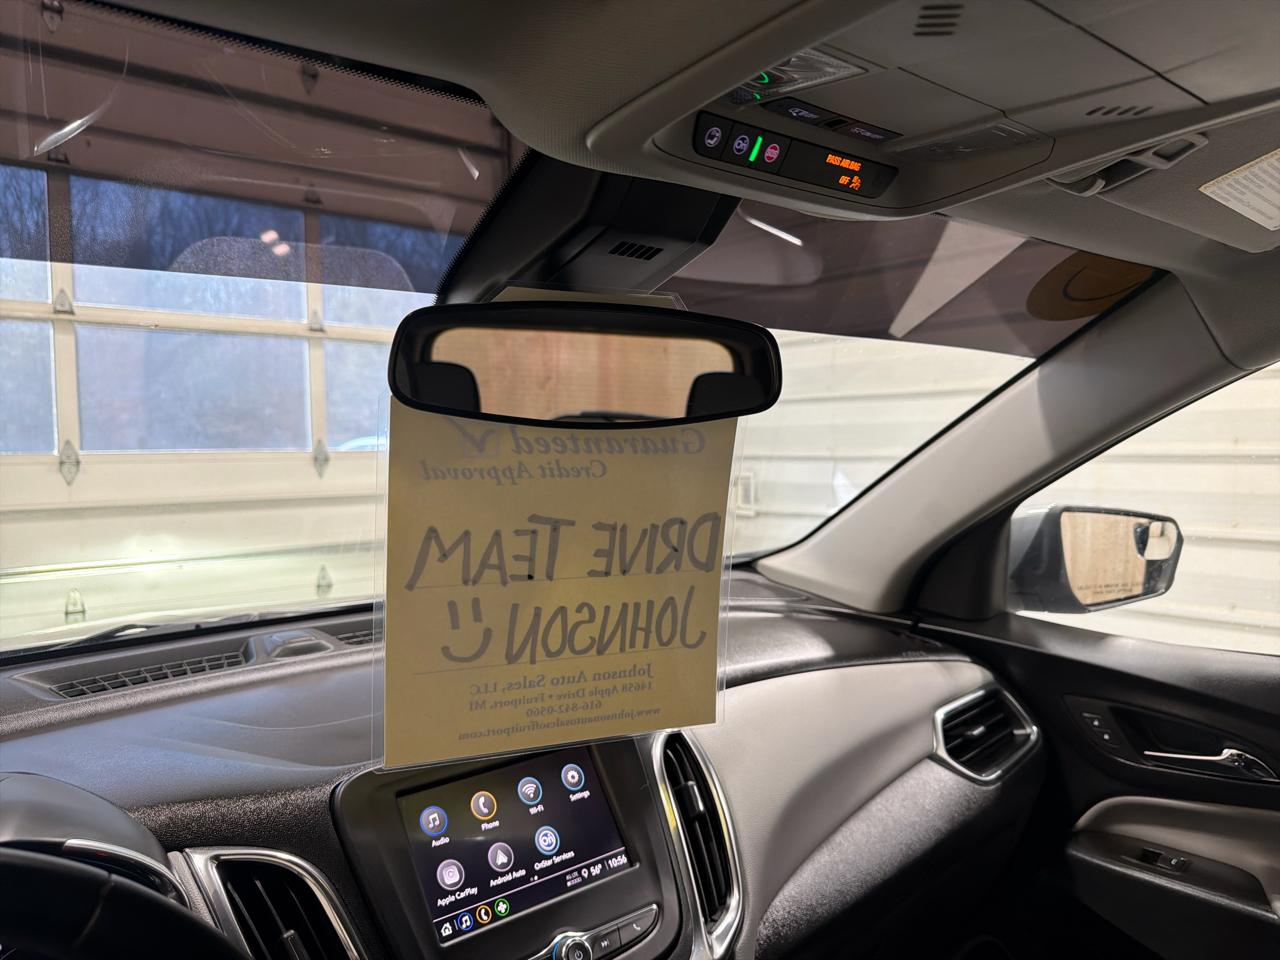 PASS AIR BAG
OFF
Guaranteed
Credit Approval
DRIVE TEAM
JOHNSON
Johnson Auto Sales, LLC
14658 Apple Drive • Fruitport, MI
616-842-0560
www.johnsonautosalesoffruitport.com
Audio
Phone
Wi-Fi
Settings
Apple CarPlay
Android Auto
OnStar Services
4G LTE
56° 10:56